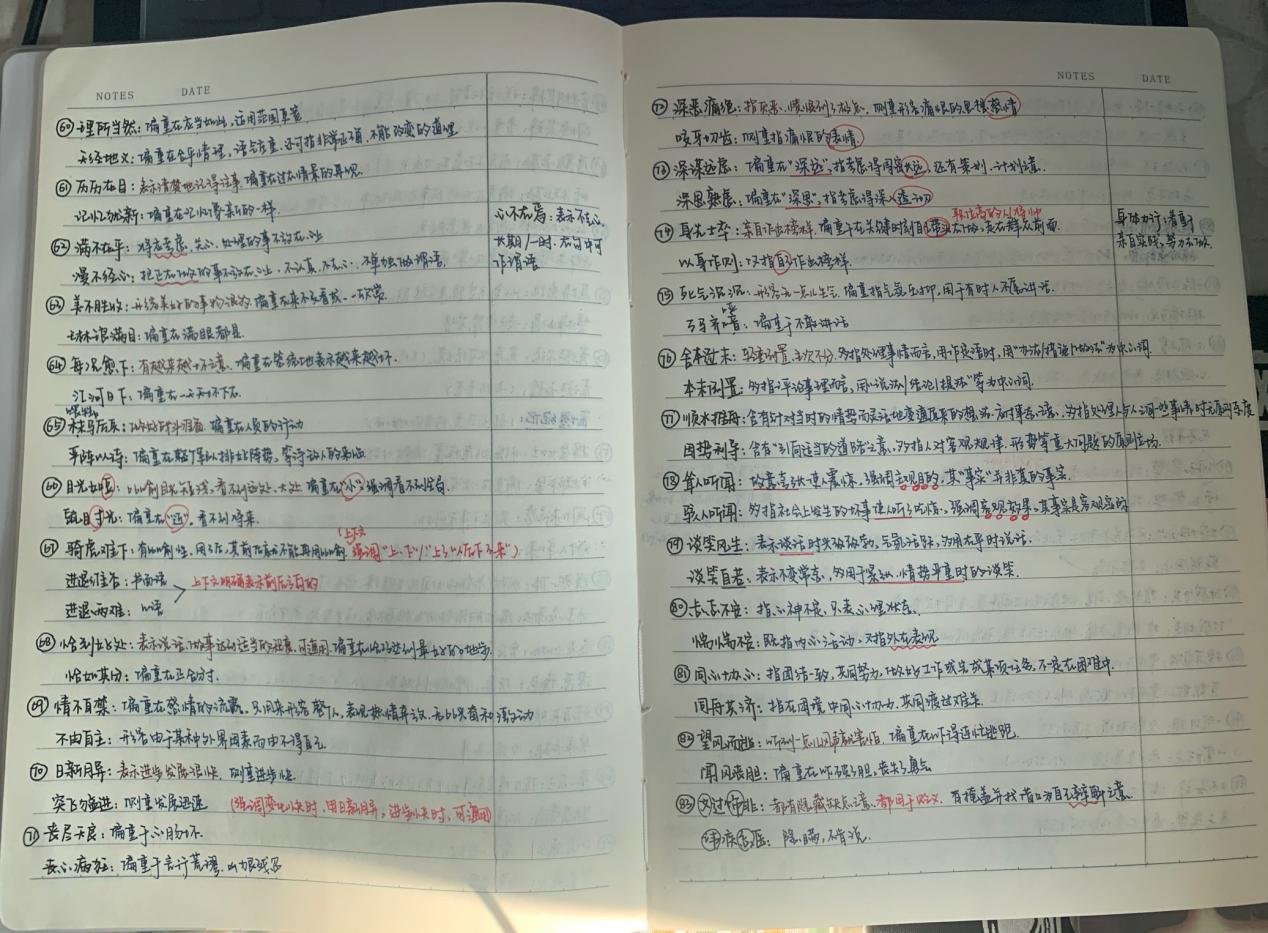 NOTES DATE
⑥⓪ 理所当然：偏重在应当如此，适用范围更宽
天经地义：偏重在合乎情理，语气庄重，还可指非常正确，不能改变的道理
⑥① 历历在目：表示清楚地记得往事，偏重在过去情景的再现
记忆犹新：偏重在记忆像新的一样
⑥② 满不在乎：
漫不经心：把正在做的事不放在心上，不认真，不专心，不单独做谓语
心不在焉：表示不专心，
长期/一时，在句中可
作谓语
⑥③ 美不胜收：形容美好的事物很多，偏重在来不及看或一一欣赏
琳琅满目：偏重在满眼都是
⑥④ 每况愈下：有越来越坏之意，偏重在笼统地表示越来越坏
江河日下：偏重在一天天不下去
⑥⑤ 秣马厉兵：做好战斗准备，偏重在人员的行动
严阵以待：偏重在整顿军队排好阵势，等待敌人的来临
⑥⑥ 目光如豆：比喻目光短浅，看不到远处、大处，偏重在“小”强调看不到全局
鼠目寸光：偏重在“近”，看不到将来
⑥⑦ 骑虎难下：有比喻性，用了后，其前后不能再用比喻 强调“上、下”/“上了以后下不来”）
（上下文
进退维谷：书面语
进退两难：口语
上下文明确表示前后方向的
⑥⑧ 恰到好处：表示说话、做事达到适当的程度，可通用，偏重在恰好达到最好的地步
恰如其分：偏重在正合分寸
⑥⑨ 情不自禁：偏重在感情的流露，只用来形容整个人，表现热情奔放、无比兴奋和激动
不由自主：形容由于某种外界因素而由不得自己
⑦⓪ 日新月异：表示进步发展很快，侧重进步快
突飞猛进：侧重发展迅速 （强调变化快时，用日新月异，进步快时，可通用）
⑦① 丧尽天良：偏重于心肠坏
丧心病狂：偏重于言行荒谬、凶狠残忍
NOTES DATE
⑦② 深恶痛绝：指厌恶、憎恨到了极点，侧重形容痛恨的思想感情
咬牙切齿：侧重指痛恨的表情
⑦③ 深谋远虑：偏重在“深远”，指考虑得周密长远，还有策划、计划之意
深思熟虑：偏重在“深思”，指考虑得深入透切
职位高的人/将帅
⑦④ 身先士卒：亲自作出榜样，偏重于在关键时刻自己带头去做，走在群众前面
以身作则：只指自己作出榜样
身体力行：着重于
亲自实践，努力去做
⑦⑤ 死气沉沉：形容无一点儿生气，偏重指气氛压抑，用于有时人不愿讲话
万马齐喑：偏重于不敢讲话
⑦⑥ 舍本逐末：轻重倒置，主次不分，多指处理事情而言，用作定语时，用“办法/措施/做法”为中心词
本末倒置：多指评论事理而言，用“说法/结论/提法”等为中心词
⑦⑦ 顺水推舟：含有针对当时的情势而灵活地变通原来的想法，应付事态之意，多指处理人与人之间一些事情时无原则态度
因势利导：含有“引向适当的道路”之意，多指人对客观规律、形势等重大问题的原则立场
⑦⑧ 耸人听闻：故意夸张使人震惊，强调主观目的，其“事实”并非真的事实
骇人听闻：多指社会上发生的坏事使人听了吃惊，强调客观效果，其事实是客观存在的
⑦⑨ 谈笑风生：表示谈话时兴致勃勃，气氛活跃，多用太平时说话
谈笑自若：表示不变常态，多用于紧张、情势严重时的谈笑
⑧⓪ 忐忑不安：指心神不定，只表心理状态
惴惴不安：既指内心活动，又指外在表现
⑧① 同心协力：指团结一致，共同努力，做好的工作或完成某项任务，不是在困难中
同舟共济：指在困境中同心协力，共同渡过难关
⑧② 望风而逃：听到一点儿风声就害怕，偏重在吓得连忙逃跑
闻风丧胆：偏重在吓破了胆，丧失了勇气
⑧③ 文过饰非：都有隐藏缺点之意，都用于贬义，有掩盖并找借口为自己辩解之意
讳疾忌医：隐瞒，不肯说